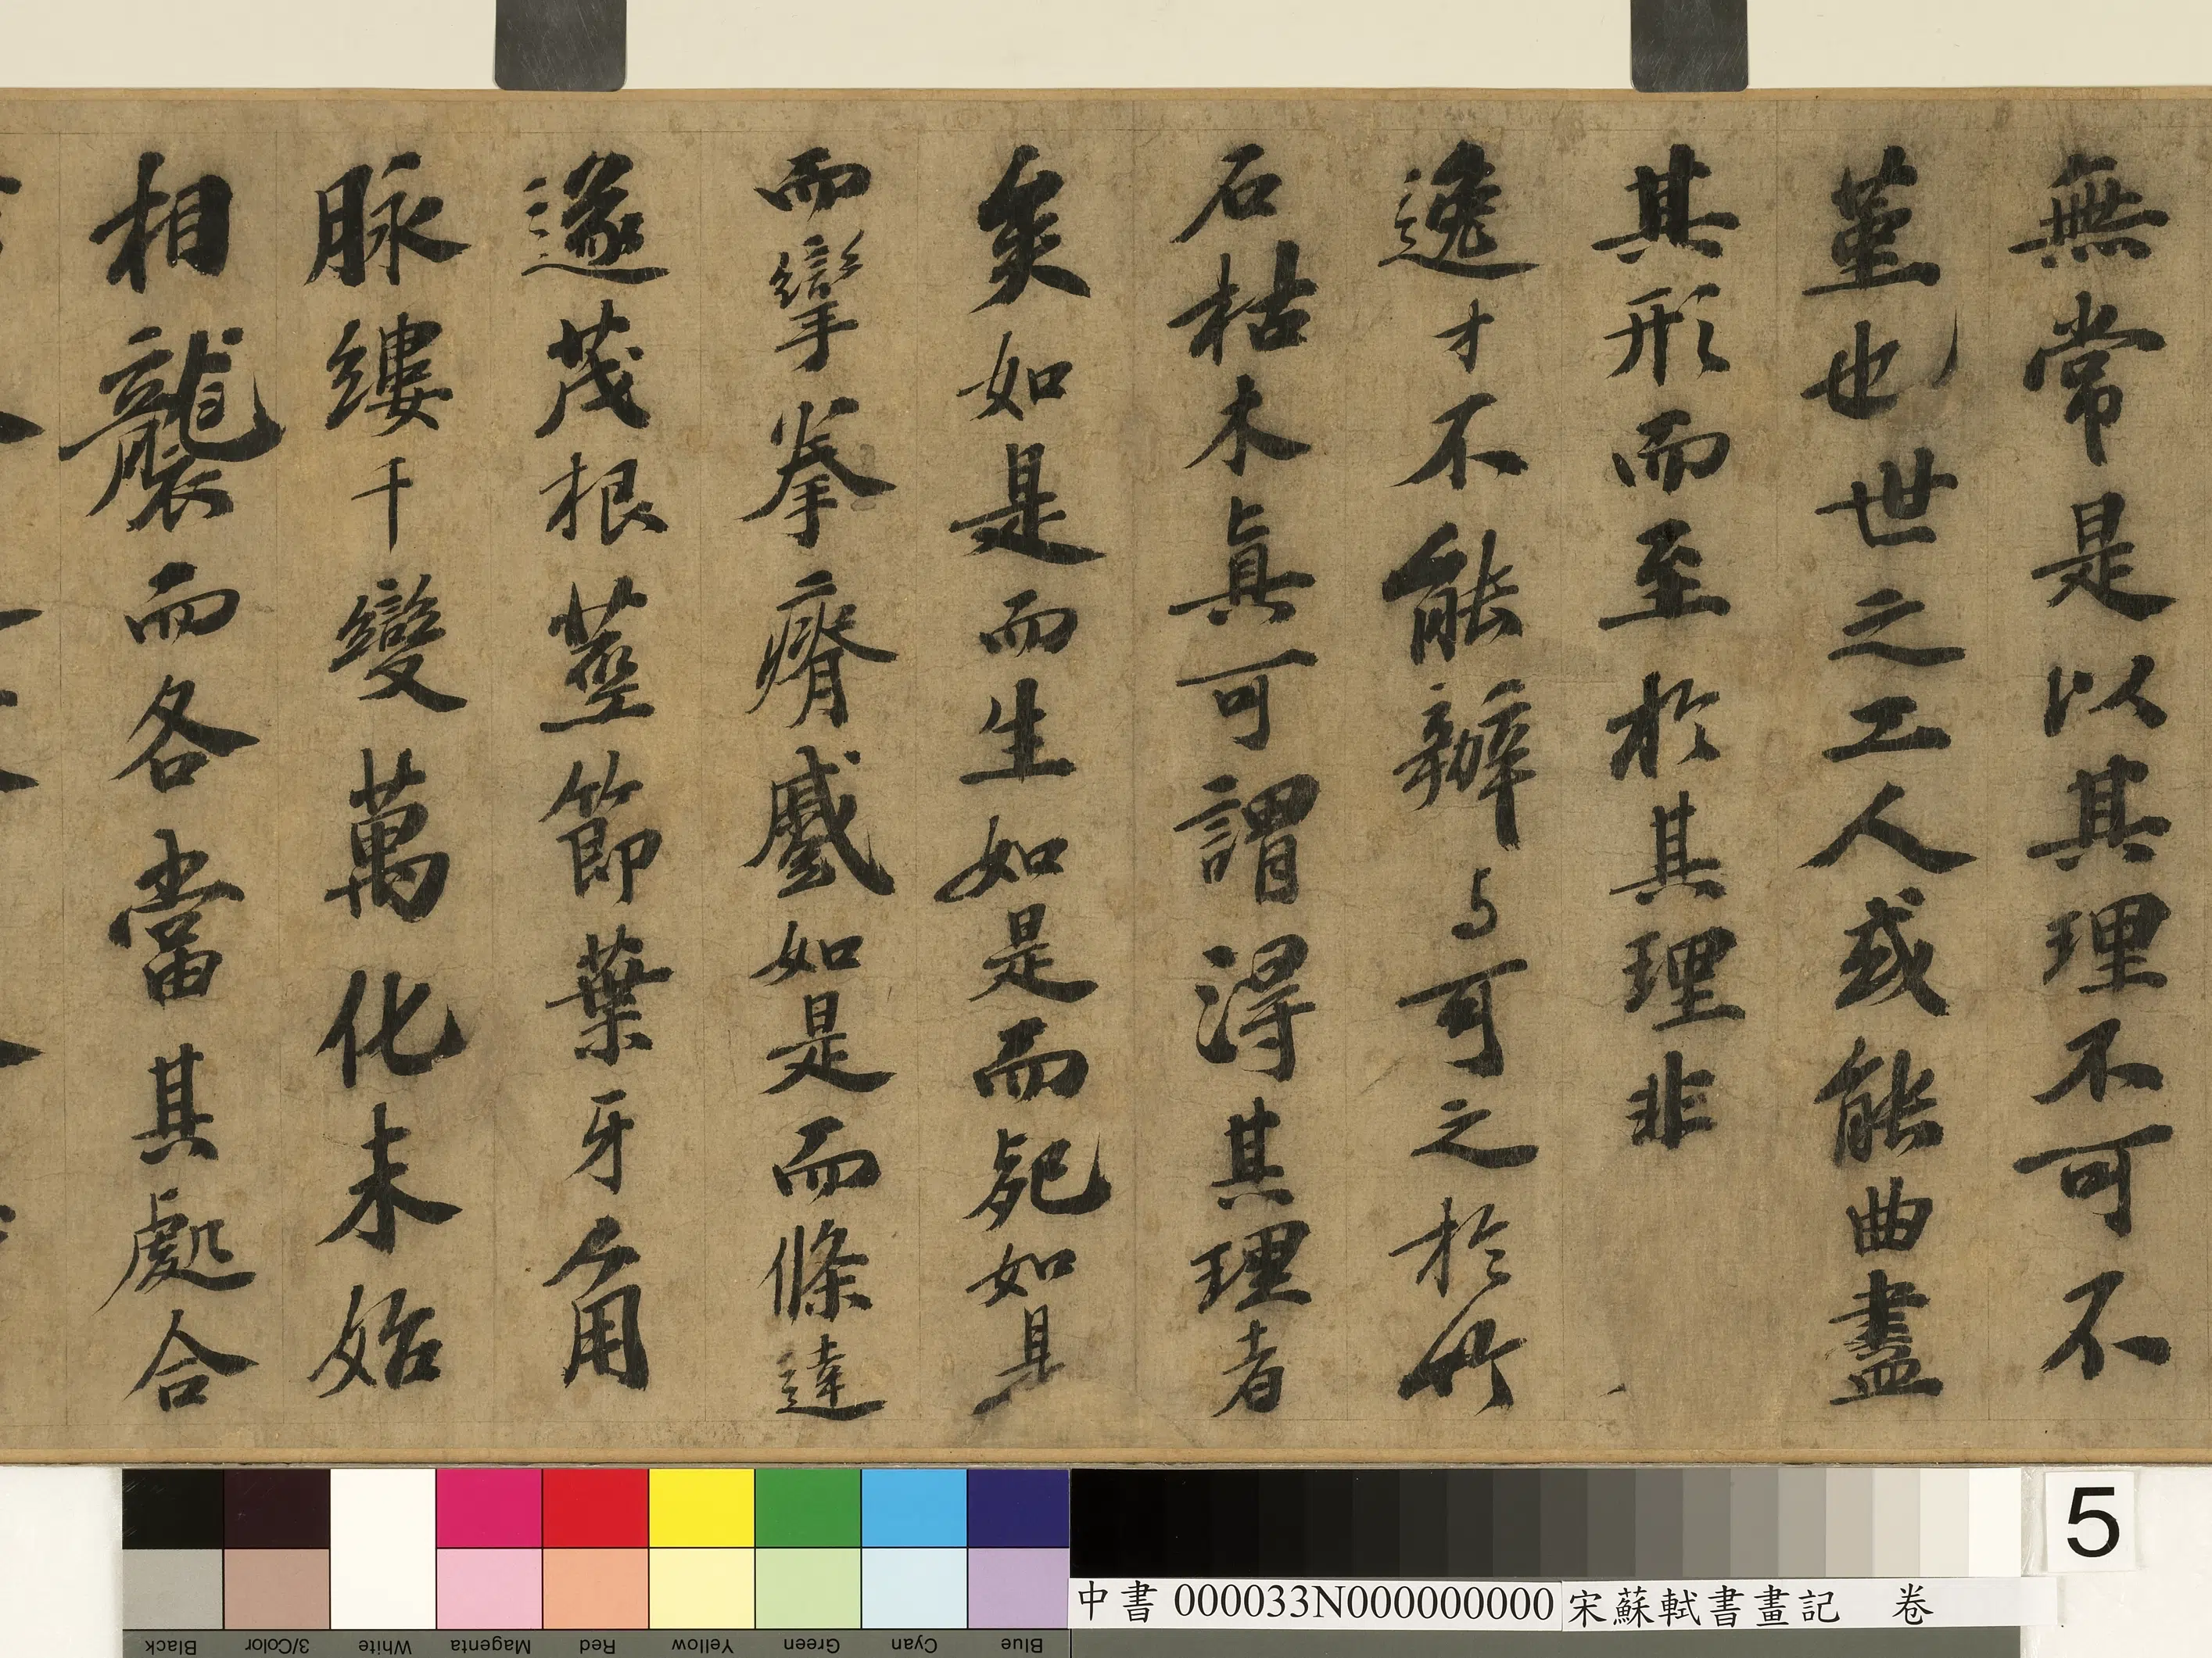 無常是以其理不可不
堇也世之工人或能曲盡
其形而至於其理非
逸才不能辦与可之於竹
石枯木真可謂得其理者
矣如是而生如是而死如是
而攣拳瘠蹙如是而條達
遂茂根莖節葉牙角
脉縷千變萬化未始
相襲而各當其處合
5
中書 000033N000000000 宋蘇軾書畫記 卷
Black
3/Color
White
Magenta
Red
Yellow
Green
Cyan
Blue